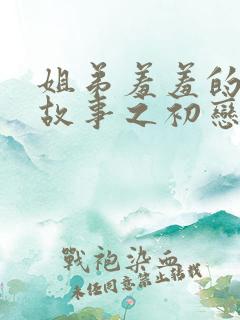 姐弟羞羞的
故事之初戀
戰袍染血
未任同意禁止轉載